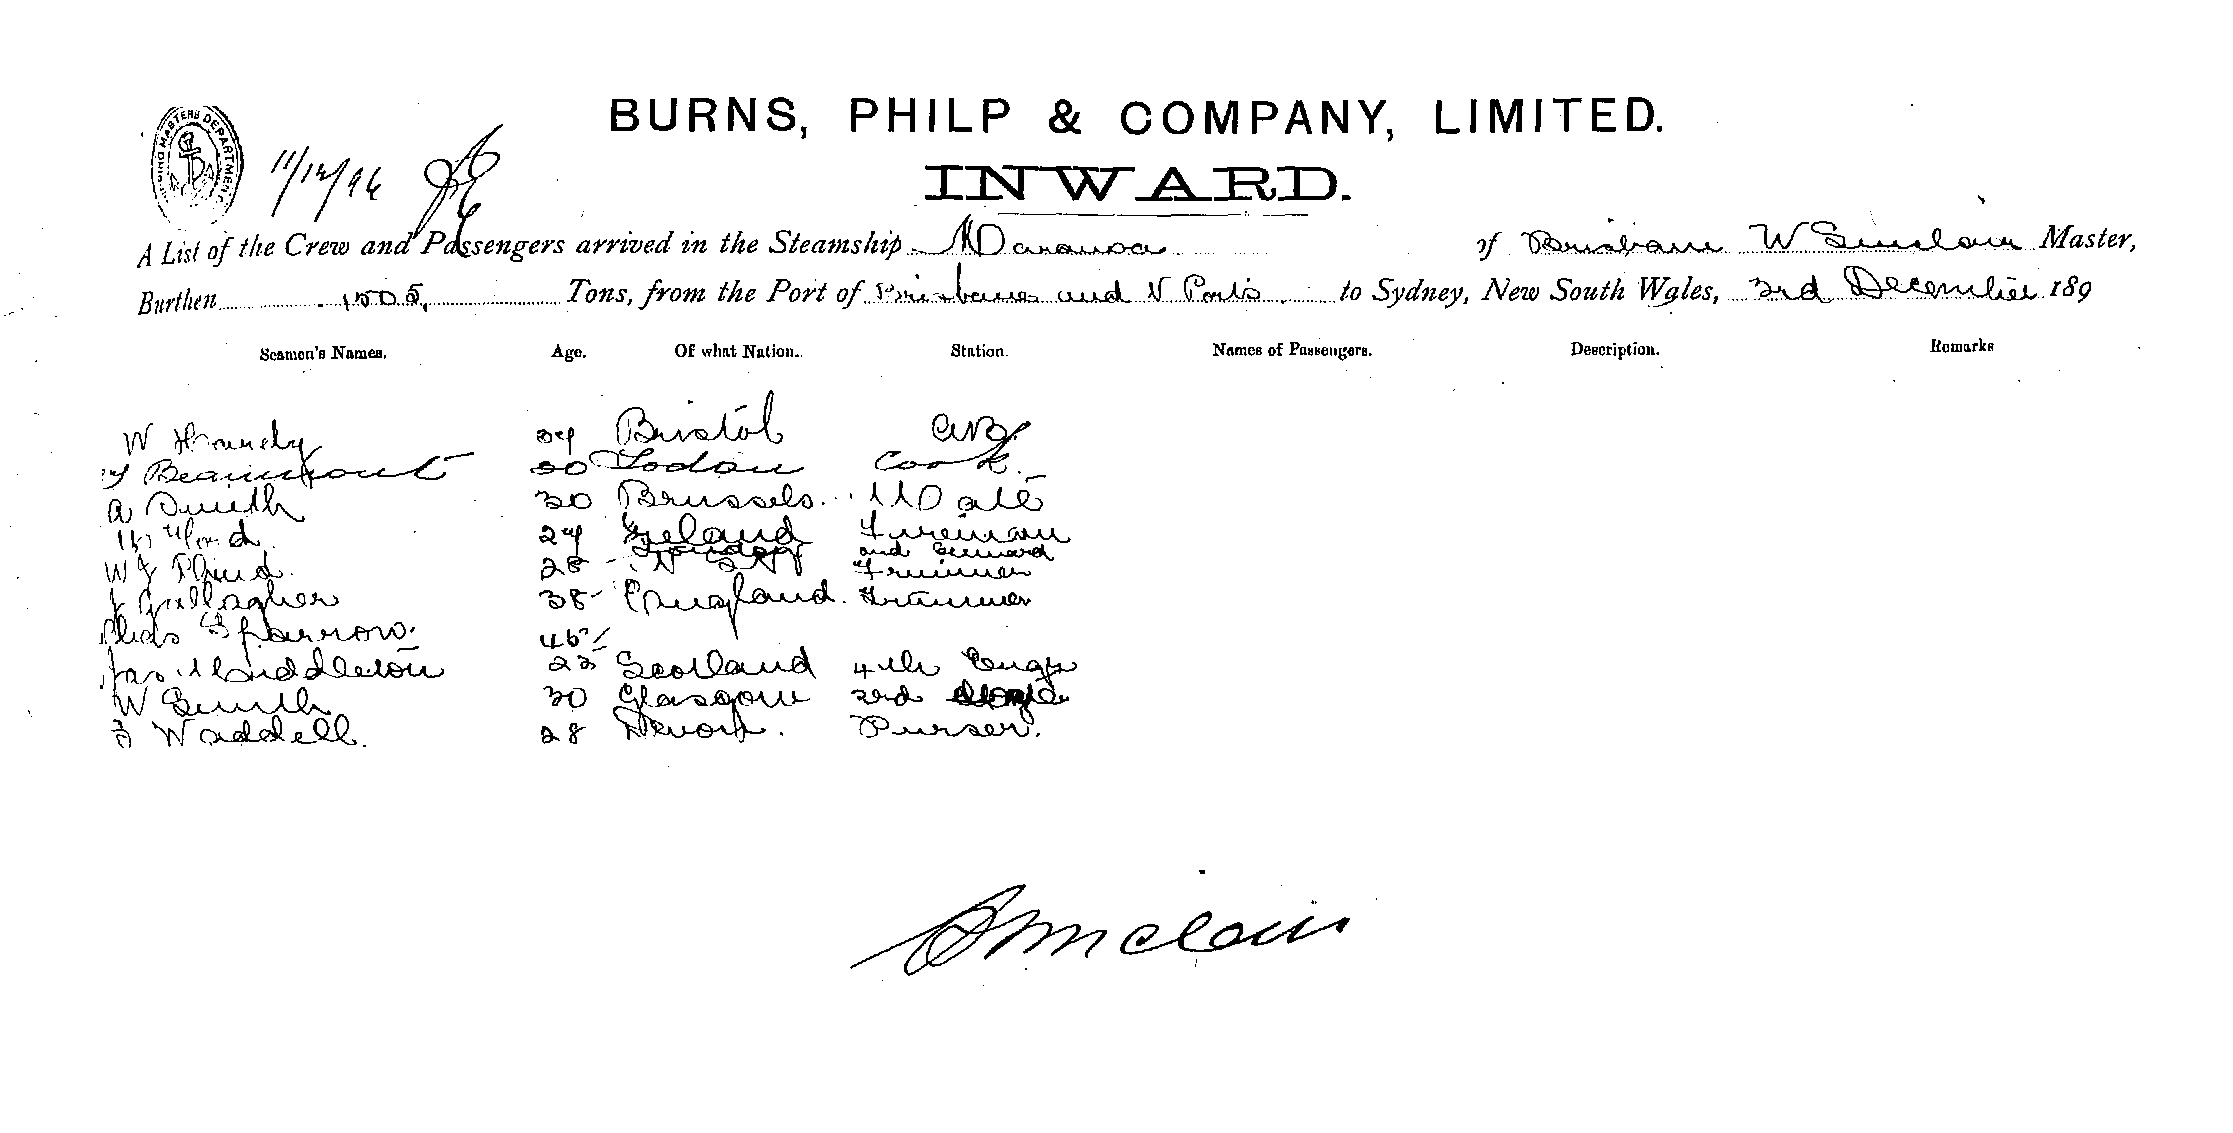 BURNS, PHILP & COMPANY, LIMITED.
INWARD.
SHIPPING MASTERS DEPARTMENT
11/12/96
A List of the Crew and Passengers arrived in the Steamship Maranoa of Brisbane W Sinclair Master,
Burthen 1505, Tons, from the Port of Brisbane and N Ports to Sydney, New South Wales, 3rd December 189
Seamen's Names. Age. Of what Nation. Station. Names of Passengers. Description. Remarks
W Bristol AB
Beaumont 30 Lodon Cook.
A Smith 30 Brussels Mate
24 Ireland Fireman
W 28 N S W Trimmer
J Gallagher 38 England Trimmer
Chas Sparrow. 46
Jas Middleton 22 Scotland 4th Engr
W Smith 30 Glasgow 3rd
Waddell. 28 Devon. Purser.
Sinclair